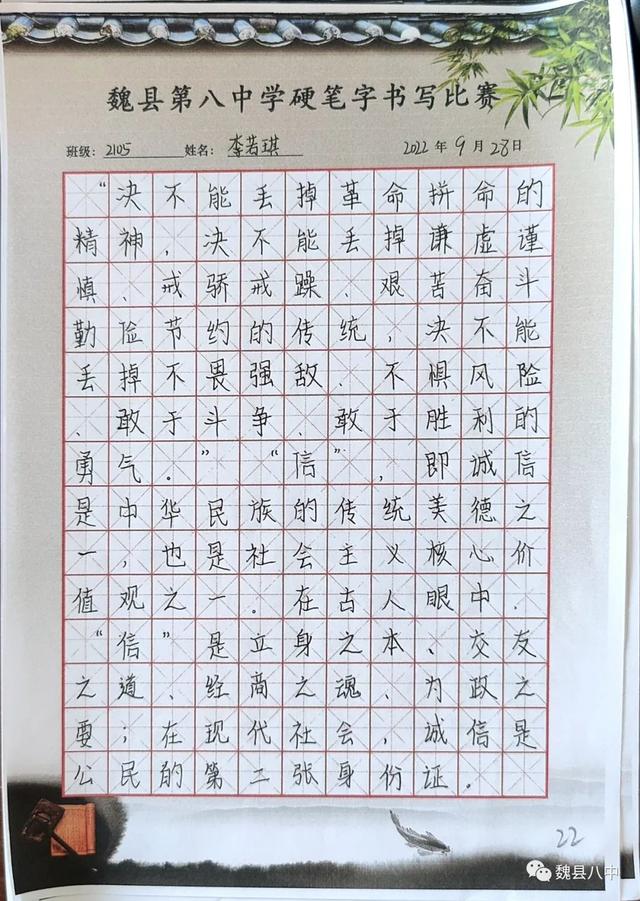 魏县第八中学硬笔字书写比赛
班级：2105 姓名：李若琪 2022年9月28日
“决不能丢掉革命拼命的
精神，决不能丢掉谦虚谨
慎、戒骄戒躁、艰苦奋斗
勤俭节约的传统，决不能
丢掉不畏强敌、不惧风险
、敢于斗争、敢于胜利的
勇气。”“信”，即诚信
是中华民族的传统美德之
一，也是社会主义核心价
值观之一。在古人眼中，
“信”是立身之本、交友
之道、经商之魂、为政之
要；在现代社会，诚信是
公民的第二张身份证。
22
魏县八中